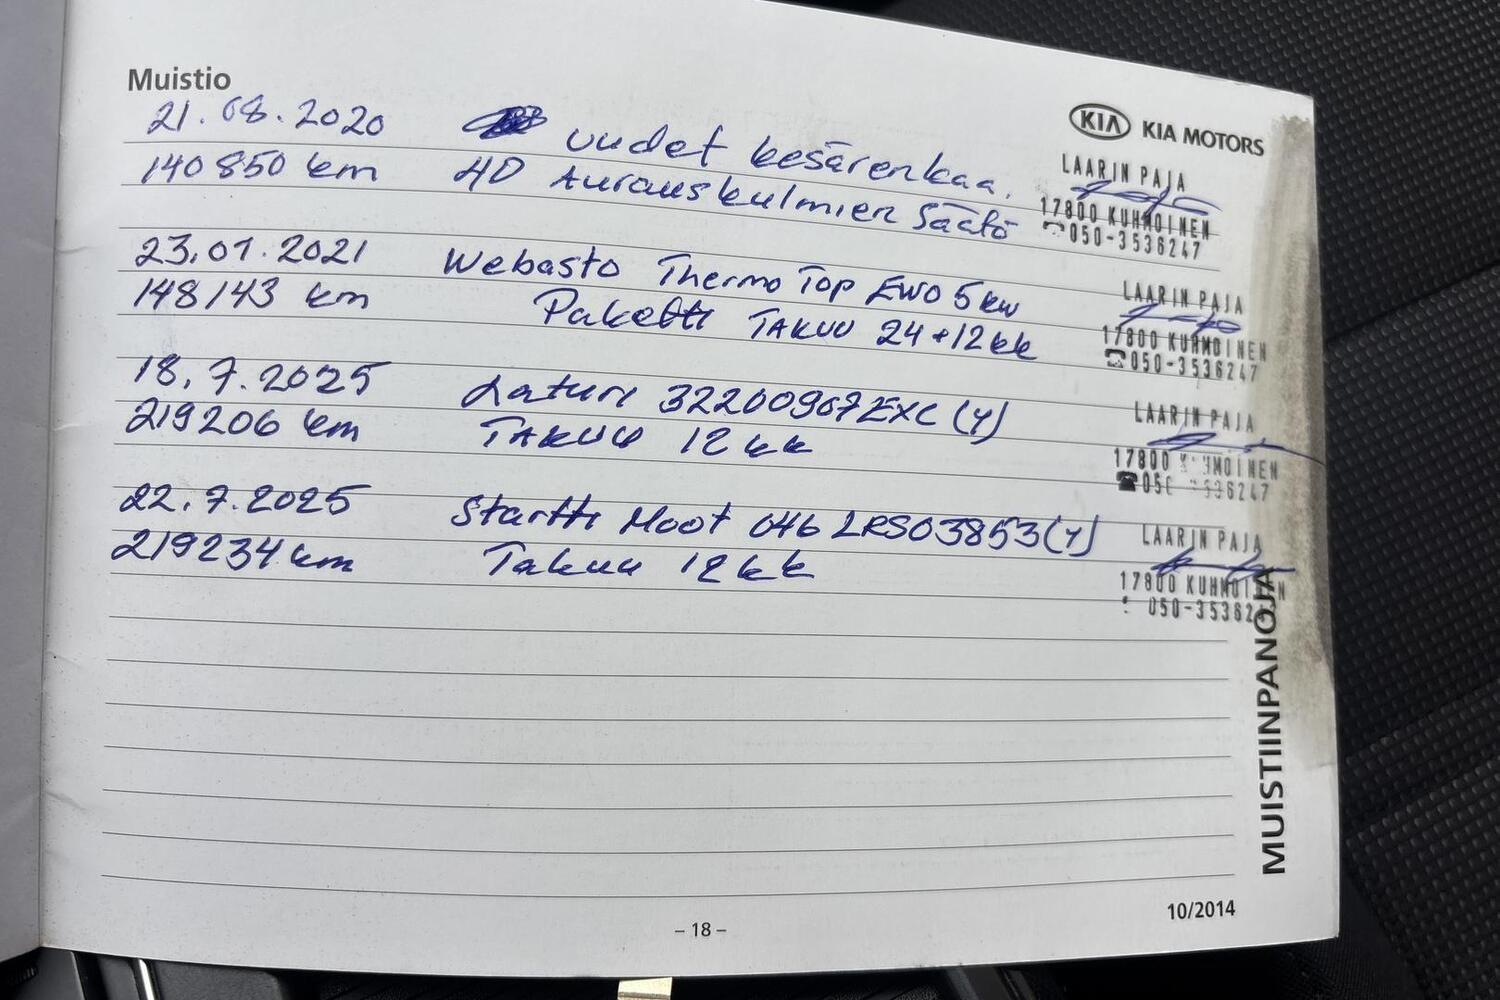 Muistio
KIA KIA MOTORS
21.08.2020 uudet kesärenkaa.
140850 km 4D Aurauskulmien Säätö
LAARIN PAJA
17800 KUHMOINEN
☎050-3536247
23.01.2021 Webasto Thermo Top EVO 5kw
148143 km Paketti TAKUU 24+12kk
LAARIN PAJA
17800 KUHMOINEN
☎050-3536247
18.7.2025 Laturi 32200907EXC (Y)
219206 km TAKUU 12kk
LAARIN PAJA
17800 KUHMOINEN
☎050-3536247
22.7.2025 Startti Moot 046 LRS03853(Y)
219234 km Takuu 12kk
LAARIN PAJA
17800 KUHMOINEN
050-3536247
MUISTIINPANOJA
10/2014
– 18 –